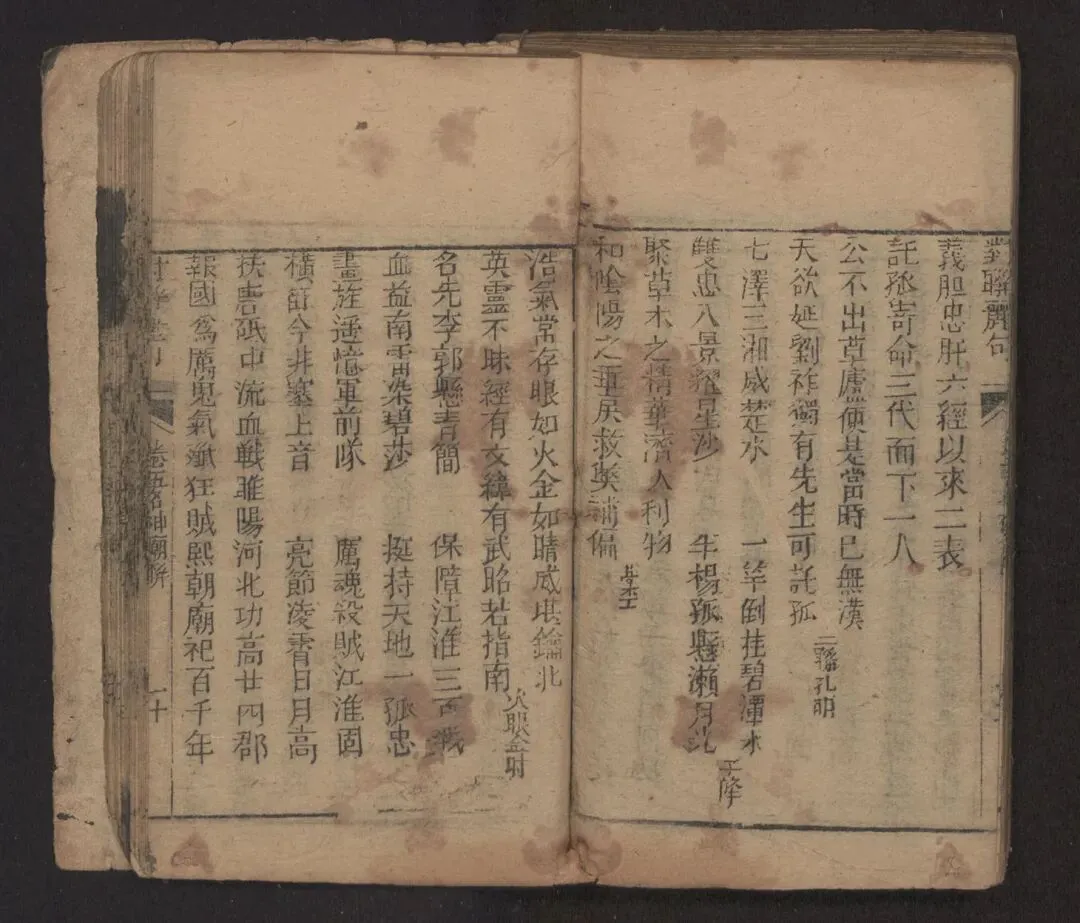 對聯麗句
義胆忠肝六經以來二表
託孤寄命三代而下一人
公不出草廬便是當時已無漢
天欲延劉祚獨有先生可託孤
二聯孔明
七澤三湘咸楚水
一竿倒挂碧潭水
雙忠八景耀星沙
羊楊孤懸瀨月
聚草木之精華濟人利物
和陰陽之爕居救獘補偏
浩氣常存眼如火金如睛威
鑰北
英靈不昧經有文緯有武昭若指南
火眼金
名先李郭縣青簡
保障江淮三百戰
血益南雷染碧莎
挺持天地一孤忠
畫旌遥憶軍前隊
厲魂殺賊江淮固
橫笛今非塞上音
亮節凌霄日月高
扶唐砥中流血戰雎陽河北功高廿四郡
報國爲厲鬼氣漸狂賊熙朝廟祀百千年
卷五名神廟
一十